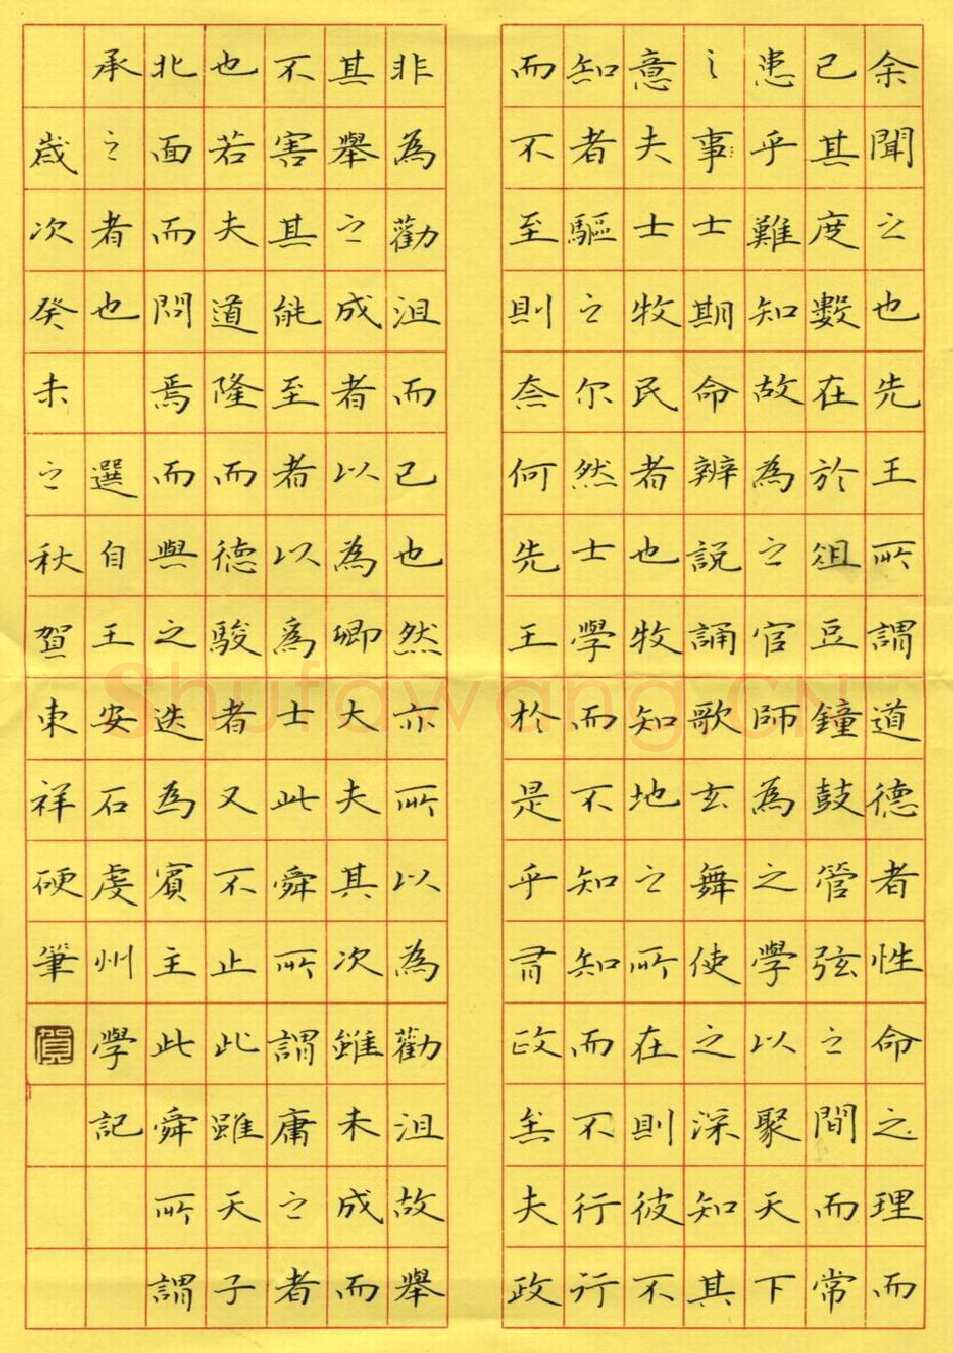 余聞之也先王所謂道德者性命之理而
已其度數在於俎豆鐘鼓管弦之間而常
患乎難知故為之官師為之學以聚天下
之事士期命辨說誦歌玄舞使之深知其
意夫士牧民者也牧知地之所在則彼不
知者驅之尔然士學而不知知而不行行
而不至則奈何先王於是乎有政矣夫政
非為勸沮而已也然亦所以為勸沮故舉
其舉之成者以為卿大夫其次雖未成而
不害其能至者以為士此舜所謂庸之者
也若夫道隆而德駿者又不止此雖天子
北面而問焉而與之迭為賓主此舜所謂
承之者也 選自王安石虔州學記
歲次癸未之秋賀東祥硬筆
賀
Shufawang.CN